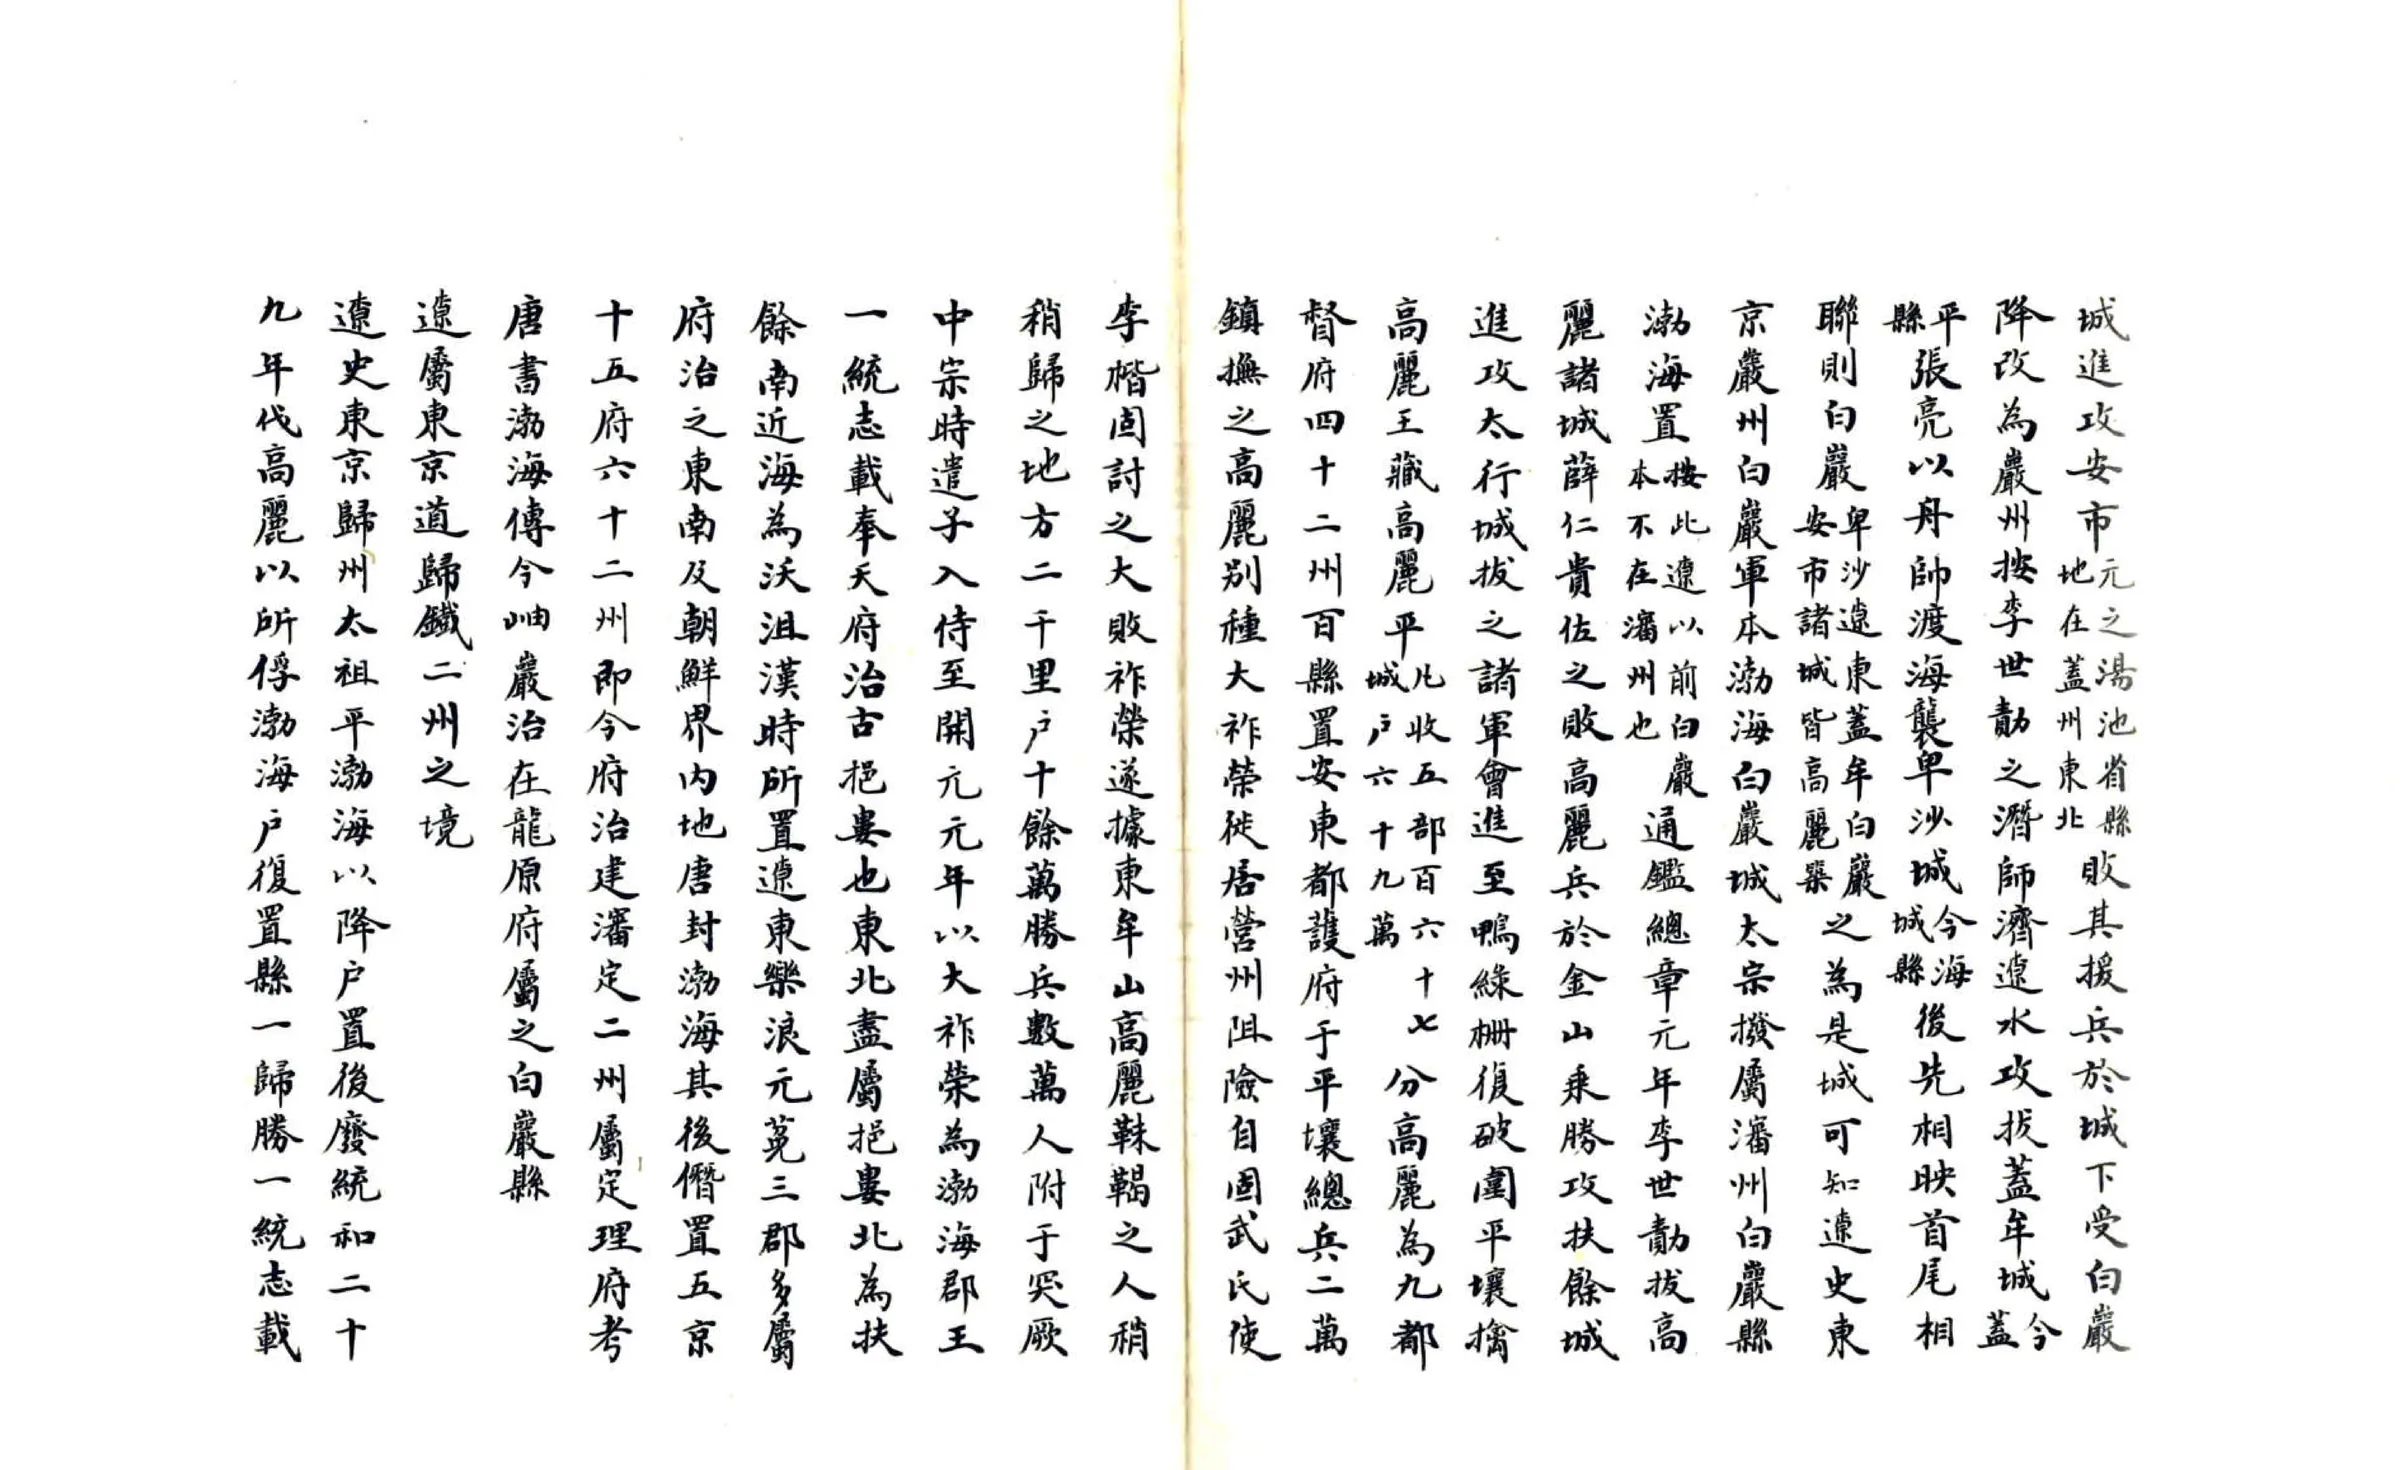 城進攻安市元之湯池省縣地在蓋州東北敗其援兵於城下受白巖
降改為巖州按李世勣之潛師濟遼水攻拔蓋牟城今蓋
平縣張亮以舟帥渡海襲卑沙城今海城縣後先相映首尾相
聯則白巖卑沙遼東蓋牟白巖安市諸城皆高麗築之為是城可知遼史東
京巖州白巖軍本渤海白巖城太宗撥屬瀋州白巖縣
渤海置按此遼以前白巖本不在瀋州也通鑑總章元年李世勣拔高
麗諸城薛仁貴佐之敗高麗兵於金山乘勝攻扶餘城
進攻太行城拔之諸軍會進至鴨綠柵復破圍平壤擒
高麗王藏高麗平凡收五部百六十七城戶六十九萬分高麗為九都
督府四十二州百縣置安東都護府于平壤總兵二萬
鎮撫之高麗別種大祚榮徙居營州阻險自固武氏使
李楷固討之大敗祚榮遂據東牟山高麗靺鞨之人稍
稍歸之地方二千里戶十餘萬勝兵數萬人附于突厥
中宗時遣子入侍至開元元年以大祚榮為渤海郡王
一統志載奉天府治古挹婁也東北盡屬挹婁北為扶
餘南近海為沃沮漢時所置遼東樂浪元菟三郡多屬
府治之東南及朝鮮界內地唐封渤海其後僭置五京
十五府六十二州即今府治建瀋定二州屬定理府考
唐書渤海傳今岫巖治在龍原府屬之白巖縣
遼屬東京道歸鐵二州之境
遼史東京歸州太祖平渤海以降戶置後廢統和二十
九年伐高麗以所俘渤海戶復置縣一歸勝一統志載